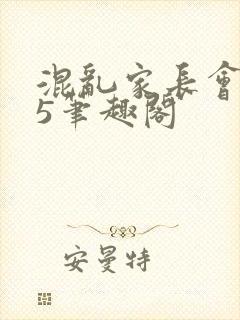 混亂家長會
5筆趣閣
安曼特